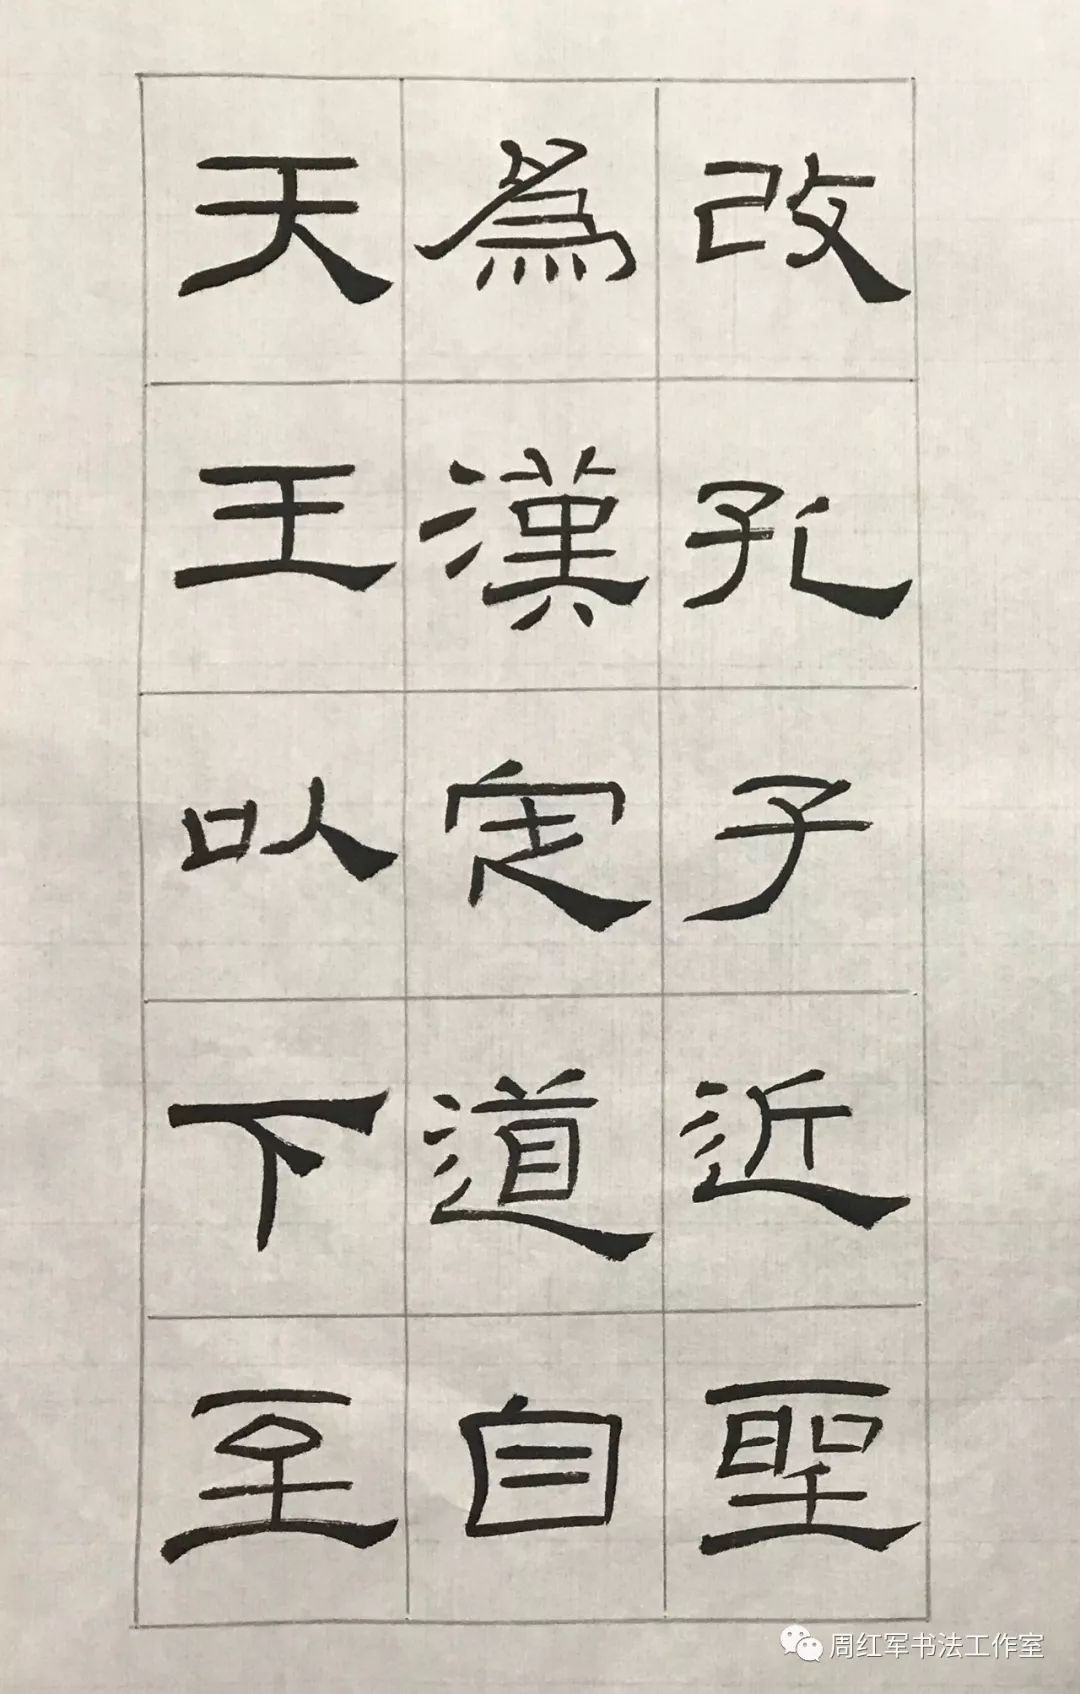 改孔子近聖
為漢定道自
天王以下至
周红军书法工作室